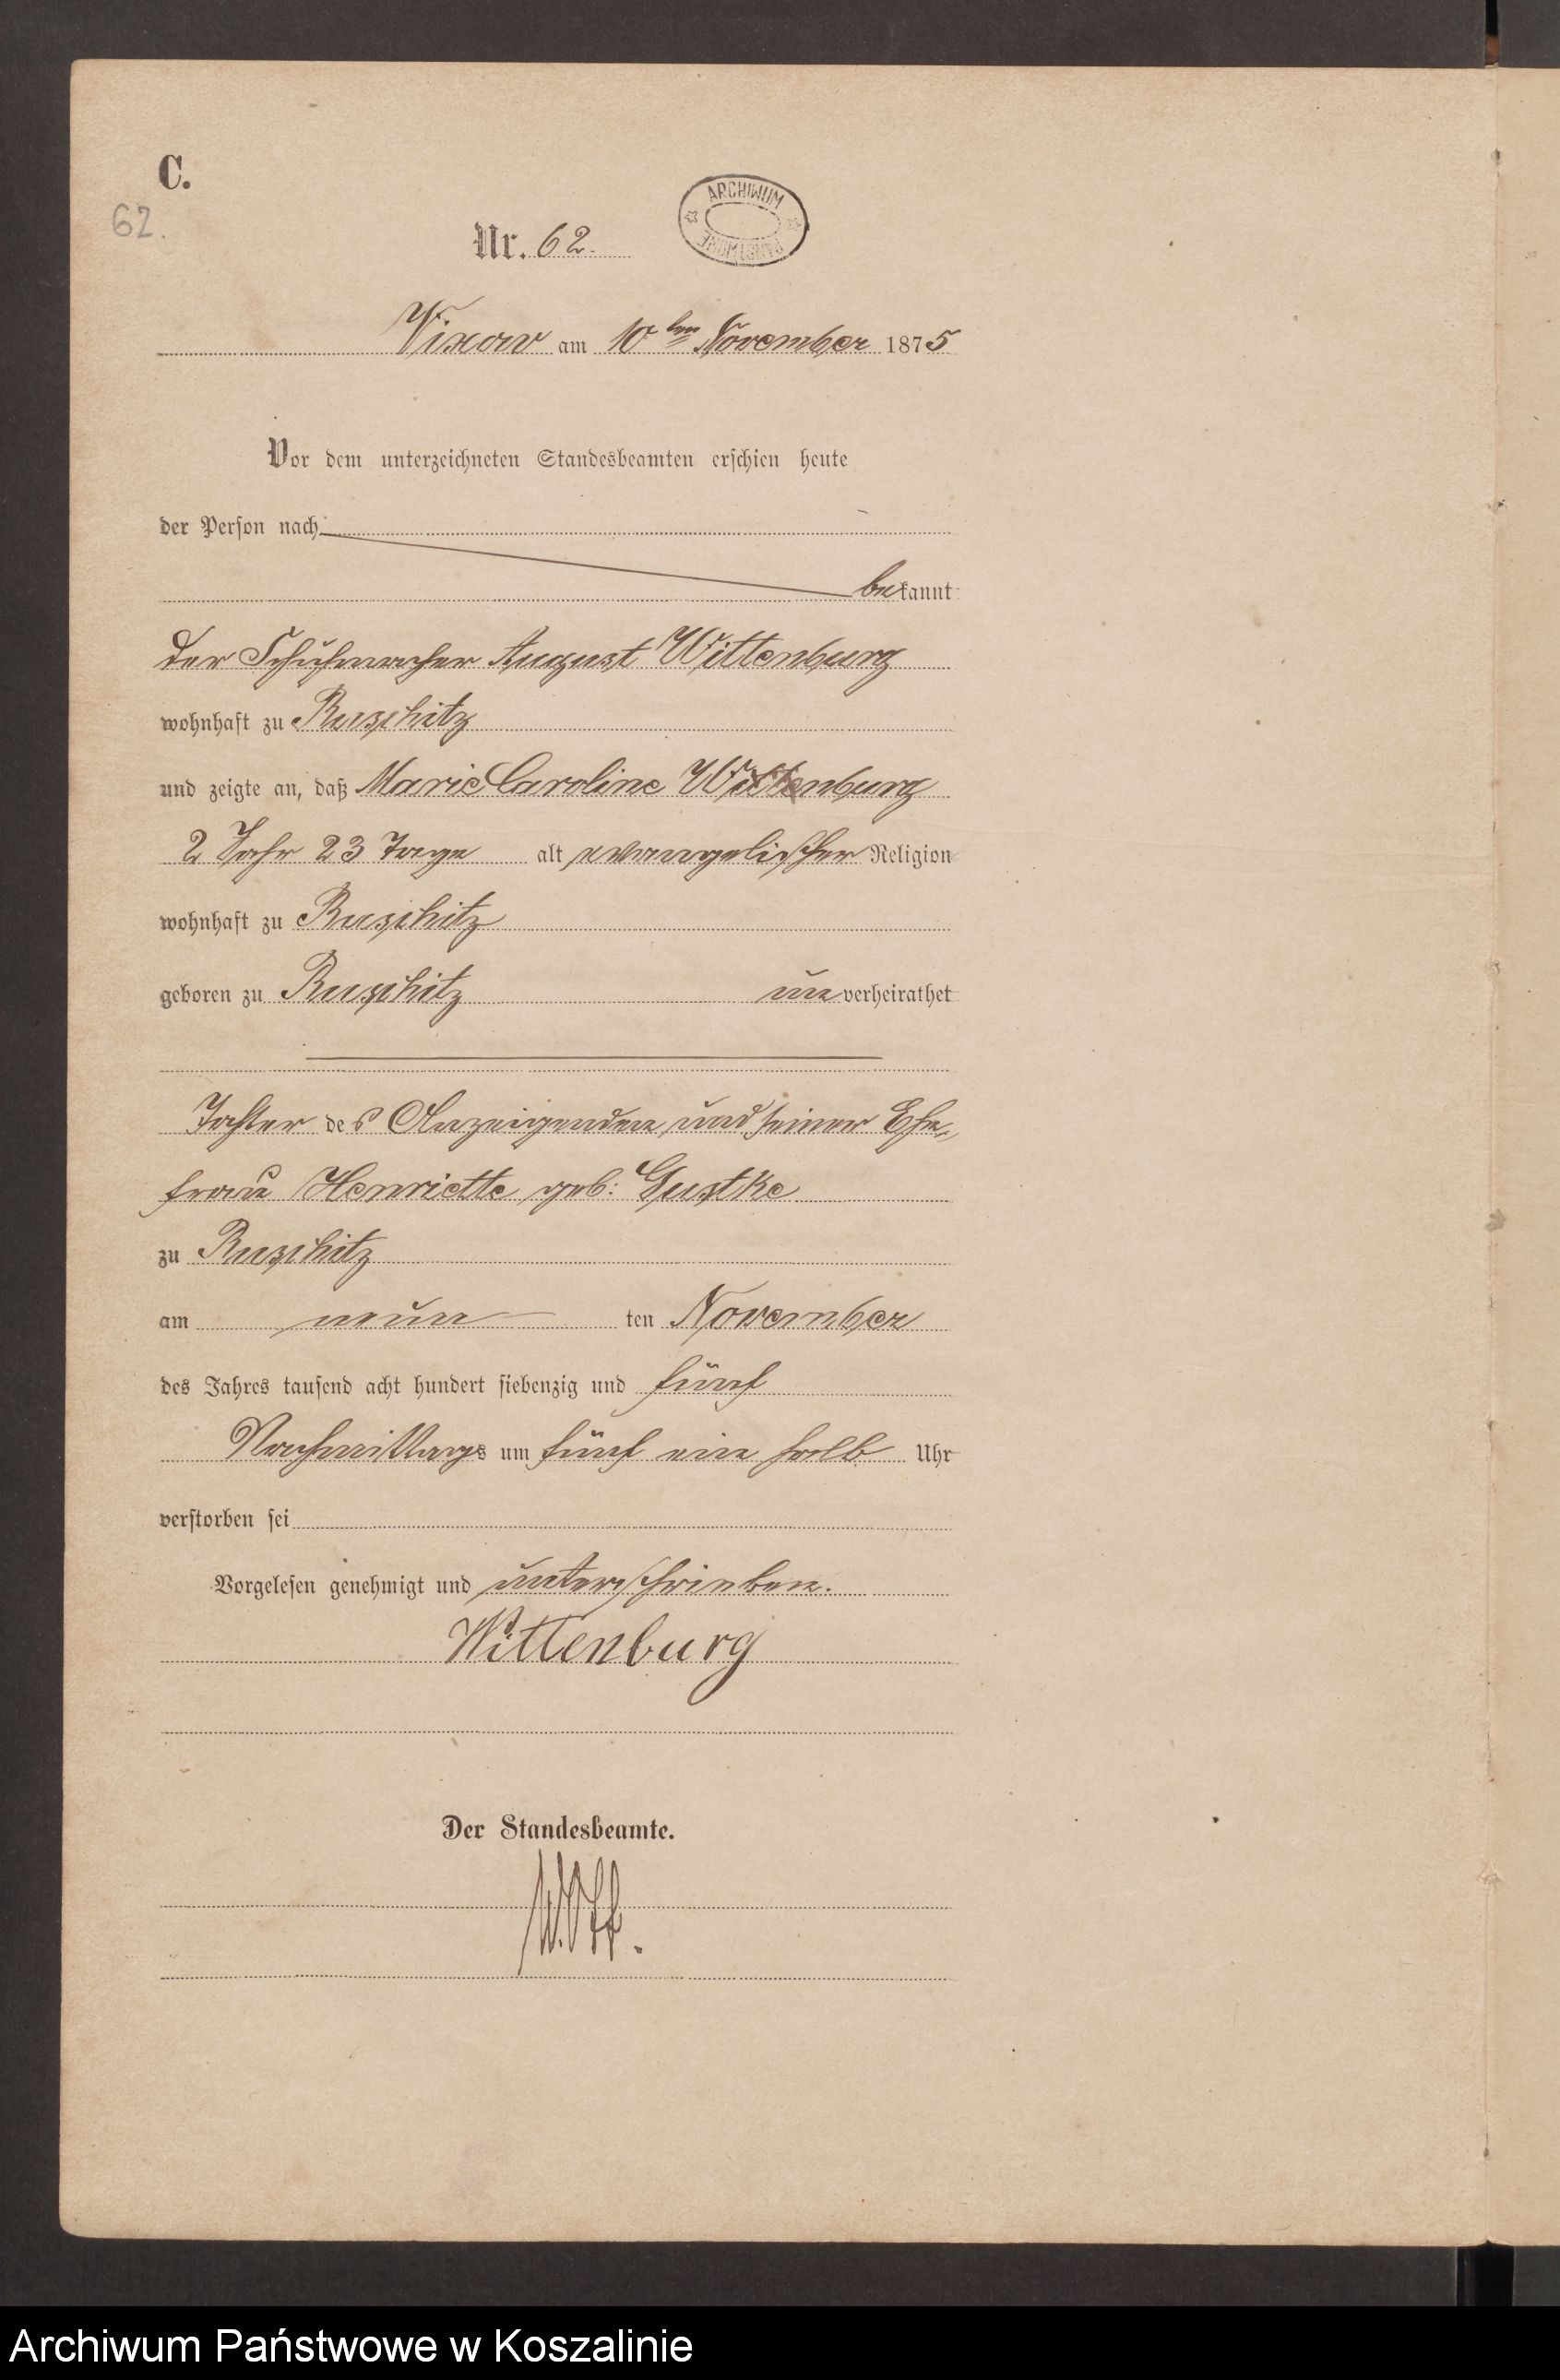 C.
62.
Nr. 62.
ARCHIWUM
PAŃSTWOWE
Vixow am 10ten November 1875
Vor dem unterzeichneten Standesbeamten erschien heute
der Person nach
bekannt
der Schuhmacher August Wittenburg
wohnhaft zu Ruschitz
und zeigte an, daß Marie Caroline Wittenburg
2 Jahr 23 Tage alt evangelischer Religion
wohnhaft zu Ruschitz
geboren zu Ruschitz unverheirathet
Tochter des Anzeigenden und seiner Ehe-
frau Henriette geb: Gustke
zu Ruschitz
am neun ten November
des Jahres tausend acht hundert siebenzig und fünf
Nachmittags um fünf ein halb Uhr
verstorben sei
Vorgelesen genehmigt und unterschrieben.
Wittenburg
Der Standesbeamte.
Archiwum Państwowe w Koszalinie